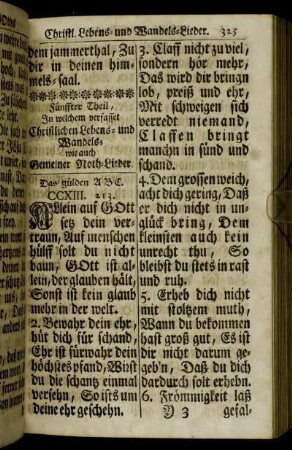 Christl. Lebens- und Wandels-Lieder. 325
dem jammerthal, Zu
dir in deinen him-
mels-saal.
Fünffter Theil,
In welchem verfasset
Christlichen Lebens- und
Wandels-
wie auch
Gemeiner Noth-Lieder.
Das gülden ABC.
CCXIII. 213.
Allein auf GOtt
setz dein ver-
traun, Auf menschen
hülff solt du nicht
baun, GOtt ist al-
lein, der glauben hält,
Sonst ist kein glaub
mehr in der welt.
2. Bewahr dein ehr,
hüt dich für schand,
Ehr ist fürwahr dein
höchstes pfand, Wirst
du die schantz einmal
versehn, So ists um
deine ehr geschehn.
3. Claff nicht zu viel,
sondern hör mehr,
Das wird dir bringn
lob, preiß und ehr,
Mit schweigen sich
verredt niemand,
Claffen bringt
manchn in sünd und
schand.
4. Dem grossen weich,
acht dich gering, Daß
er dich nicht in un-
glück bring, Dem
kleinsten auch kein
unrecht thu, So
bleibst du stets in rast
und ruh.
5. Erheb dich nicht
mit stoltzem muth,
Wann du bekommen
hast groß gut, Es ist
dir nicht darum ge-
geb'n, Daß du dich
dardurch solt erhebn.
6. Frömmigkeit laß
Y 3 gefal-